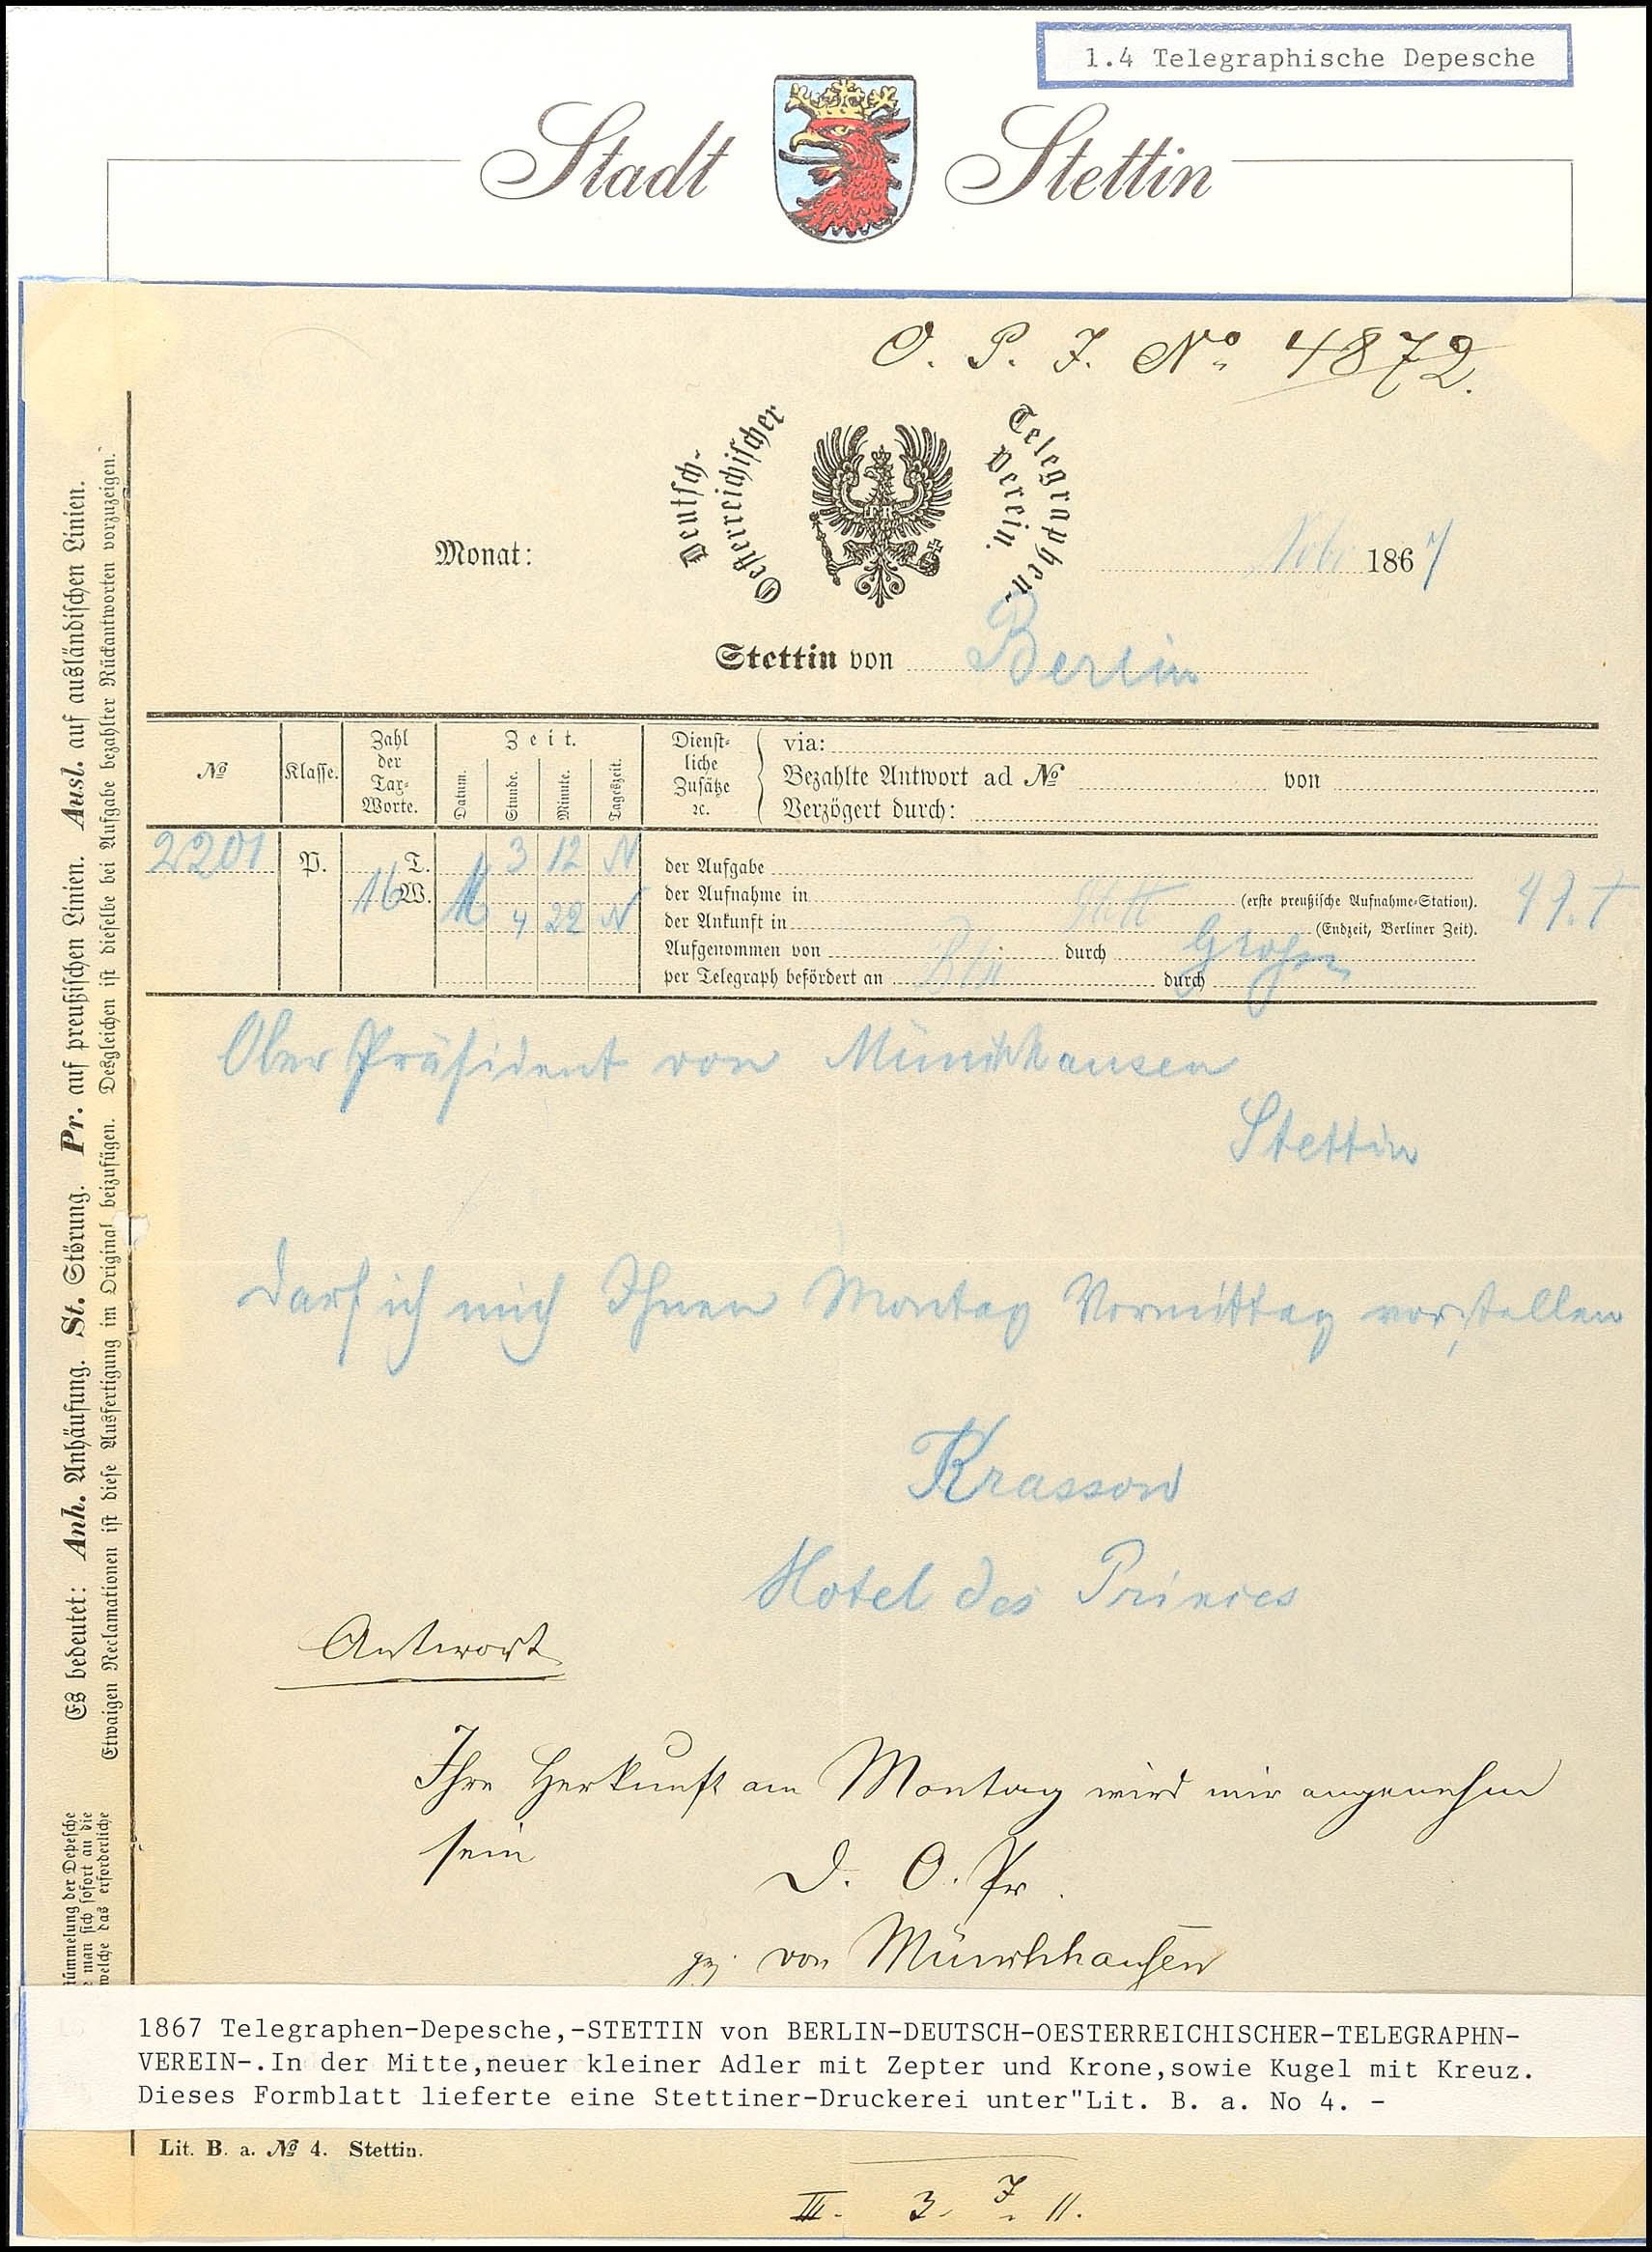 1.4 Telegraphische Depesche
Stadt Stettin
O. P. J. No 4872.
Deutsch-Oesterreichischer Telegraphen-Verein.
Monat: 1867
Stettin von Berlin
№ Klasse. Zahl der Tax-Worte. Zeit. Datum. Stunde. Minute. Tageszeit. Dienstliche Zusätze ꝛc.
via:
Bezahlte Antwort ad № von
Verzögert durch:
2201 P. T. 3 12 N der Aufgabe
16 W. der Aufnahme in (erste preußische Aufnahme-Station).
16 4 22 N der Ankunft in Stett (Endzeit, Berliner Zeit).
Aufgenommen von Bln durch
per Telegraph befördert an durch
Ober Präsident von Münchhausen
Stettin
Darf ich mich Ihnen Montag Vormittag vorstellen
Krassow
Hotel des Princes
Antwort
Ihre Herkunft am Montag wird mir angenehm
sein
D. O. Pr.
gz. von Münchhausen
Es bedeutet: Anh. Anhäufung. St. Störung. Pr. auf preußischen Linien. Ausl. auf ausländischen Linien.
Etwaigen Reclamationen ist diese Ausfertigung im Original beizufügen. Desgleichen ist dieselbe bei Aufgabe bezahlter Rückantworten vorzuzeigen.
tümmelung der Depesche
man sich sofort an die
welche das erforderliche
1867 Telegraphen-Depesche,-STETTIN von BERLIN-DEUTSCH-OESTERREICHISCHER-TELEGRAPHN-
VEREIN-.In der Mitte,neuer kleiner Adler mit Zepter und Krone,sowie Kugel mit Kreuz.
Dieses Formblatt lieferte eine Stettiner-Druckerei unter"Lit. B. a. No 4. -
Lit. B. a. № 4. Stettin.
III. 3. 11.